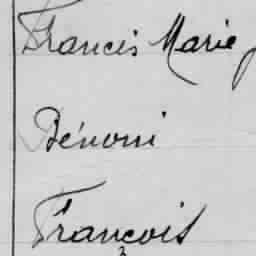 Francis Marie
Bénoni
François